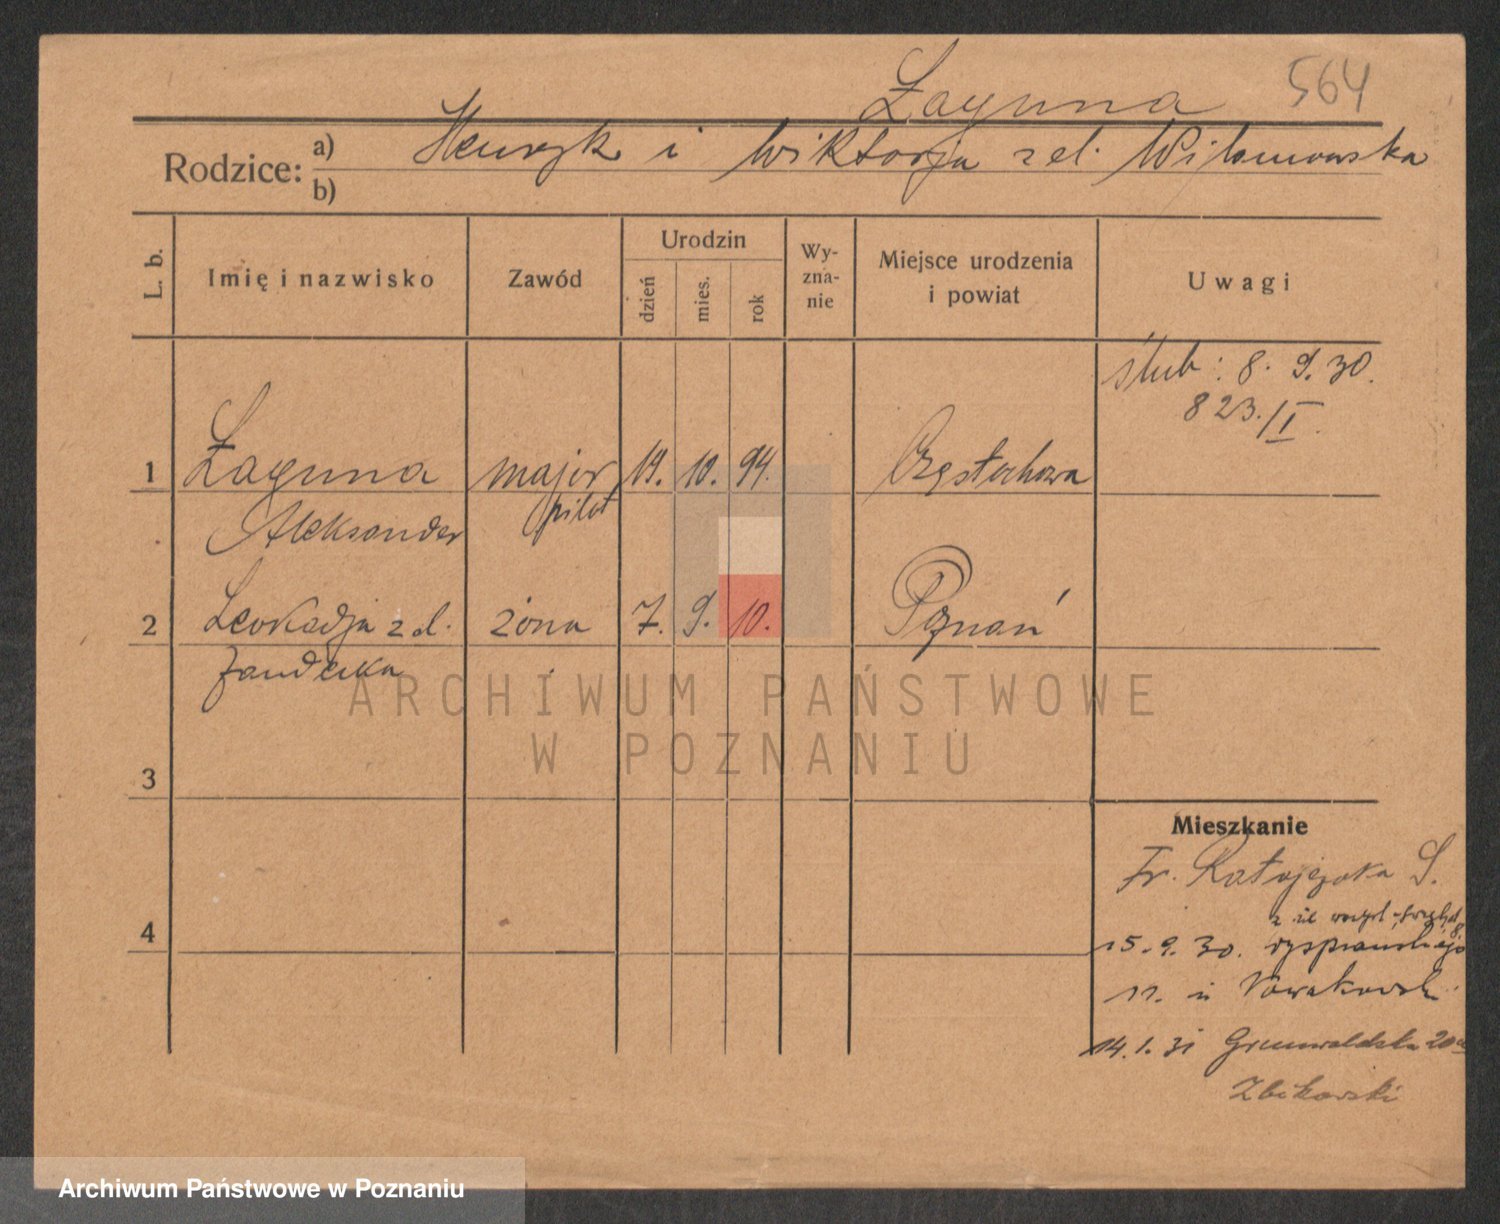 Łaguna 564
Rodzice: a) Henryk i Wiktorja z d.
b)
L. b.
Imię i nazwisko
Zawód
Urodzin
dzień
mies.
rok
Wy-
zna-
nie
Miejsce urodzenia
i powiat
Uwagi
ślub: 8. 9. 30.
823./I.
1 Łaguna major 19. 10. 94. Częstochowa
Aleksander pilot
2 Leokadja z d. żona 7. 9. 10. Poznań
3
4
Mieszkanie
Fr. Ratajczaka
15.9.30.
11. u Nowakowsk.
14.1.31 Grunwaldzka 20a
Zbikowski
ARCHIWUM PAŃSTWOWE
W POZNANIU
Archiwum Państwowe w Poznaniu